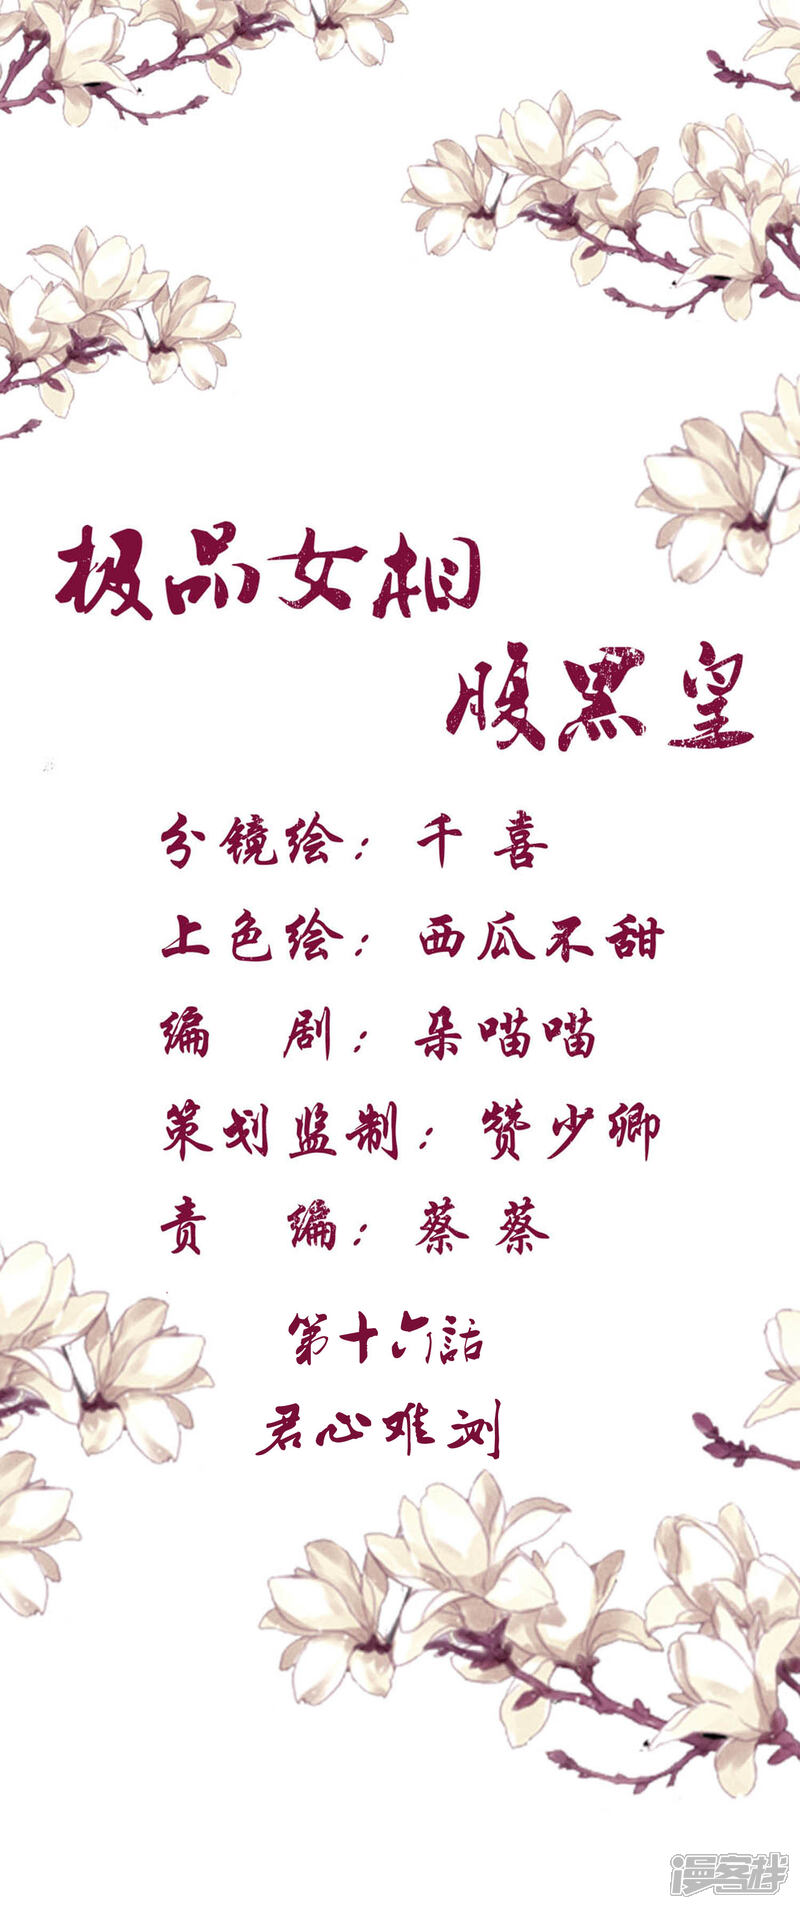 极品女相
腹黑皇
分镜绘：千喜
上色绘：西瓜不甜
编 剧：朵喵喵
策划监制：赞少卿
责 编：蔡蔡
第十六話
君心难测
漫客栈